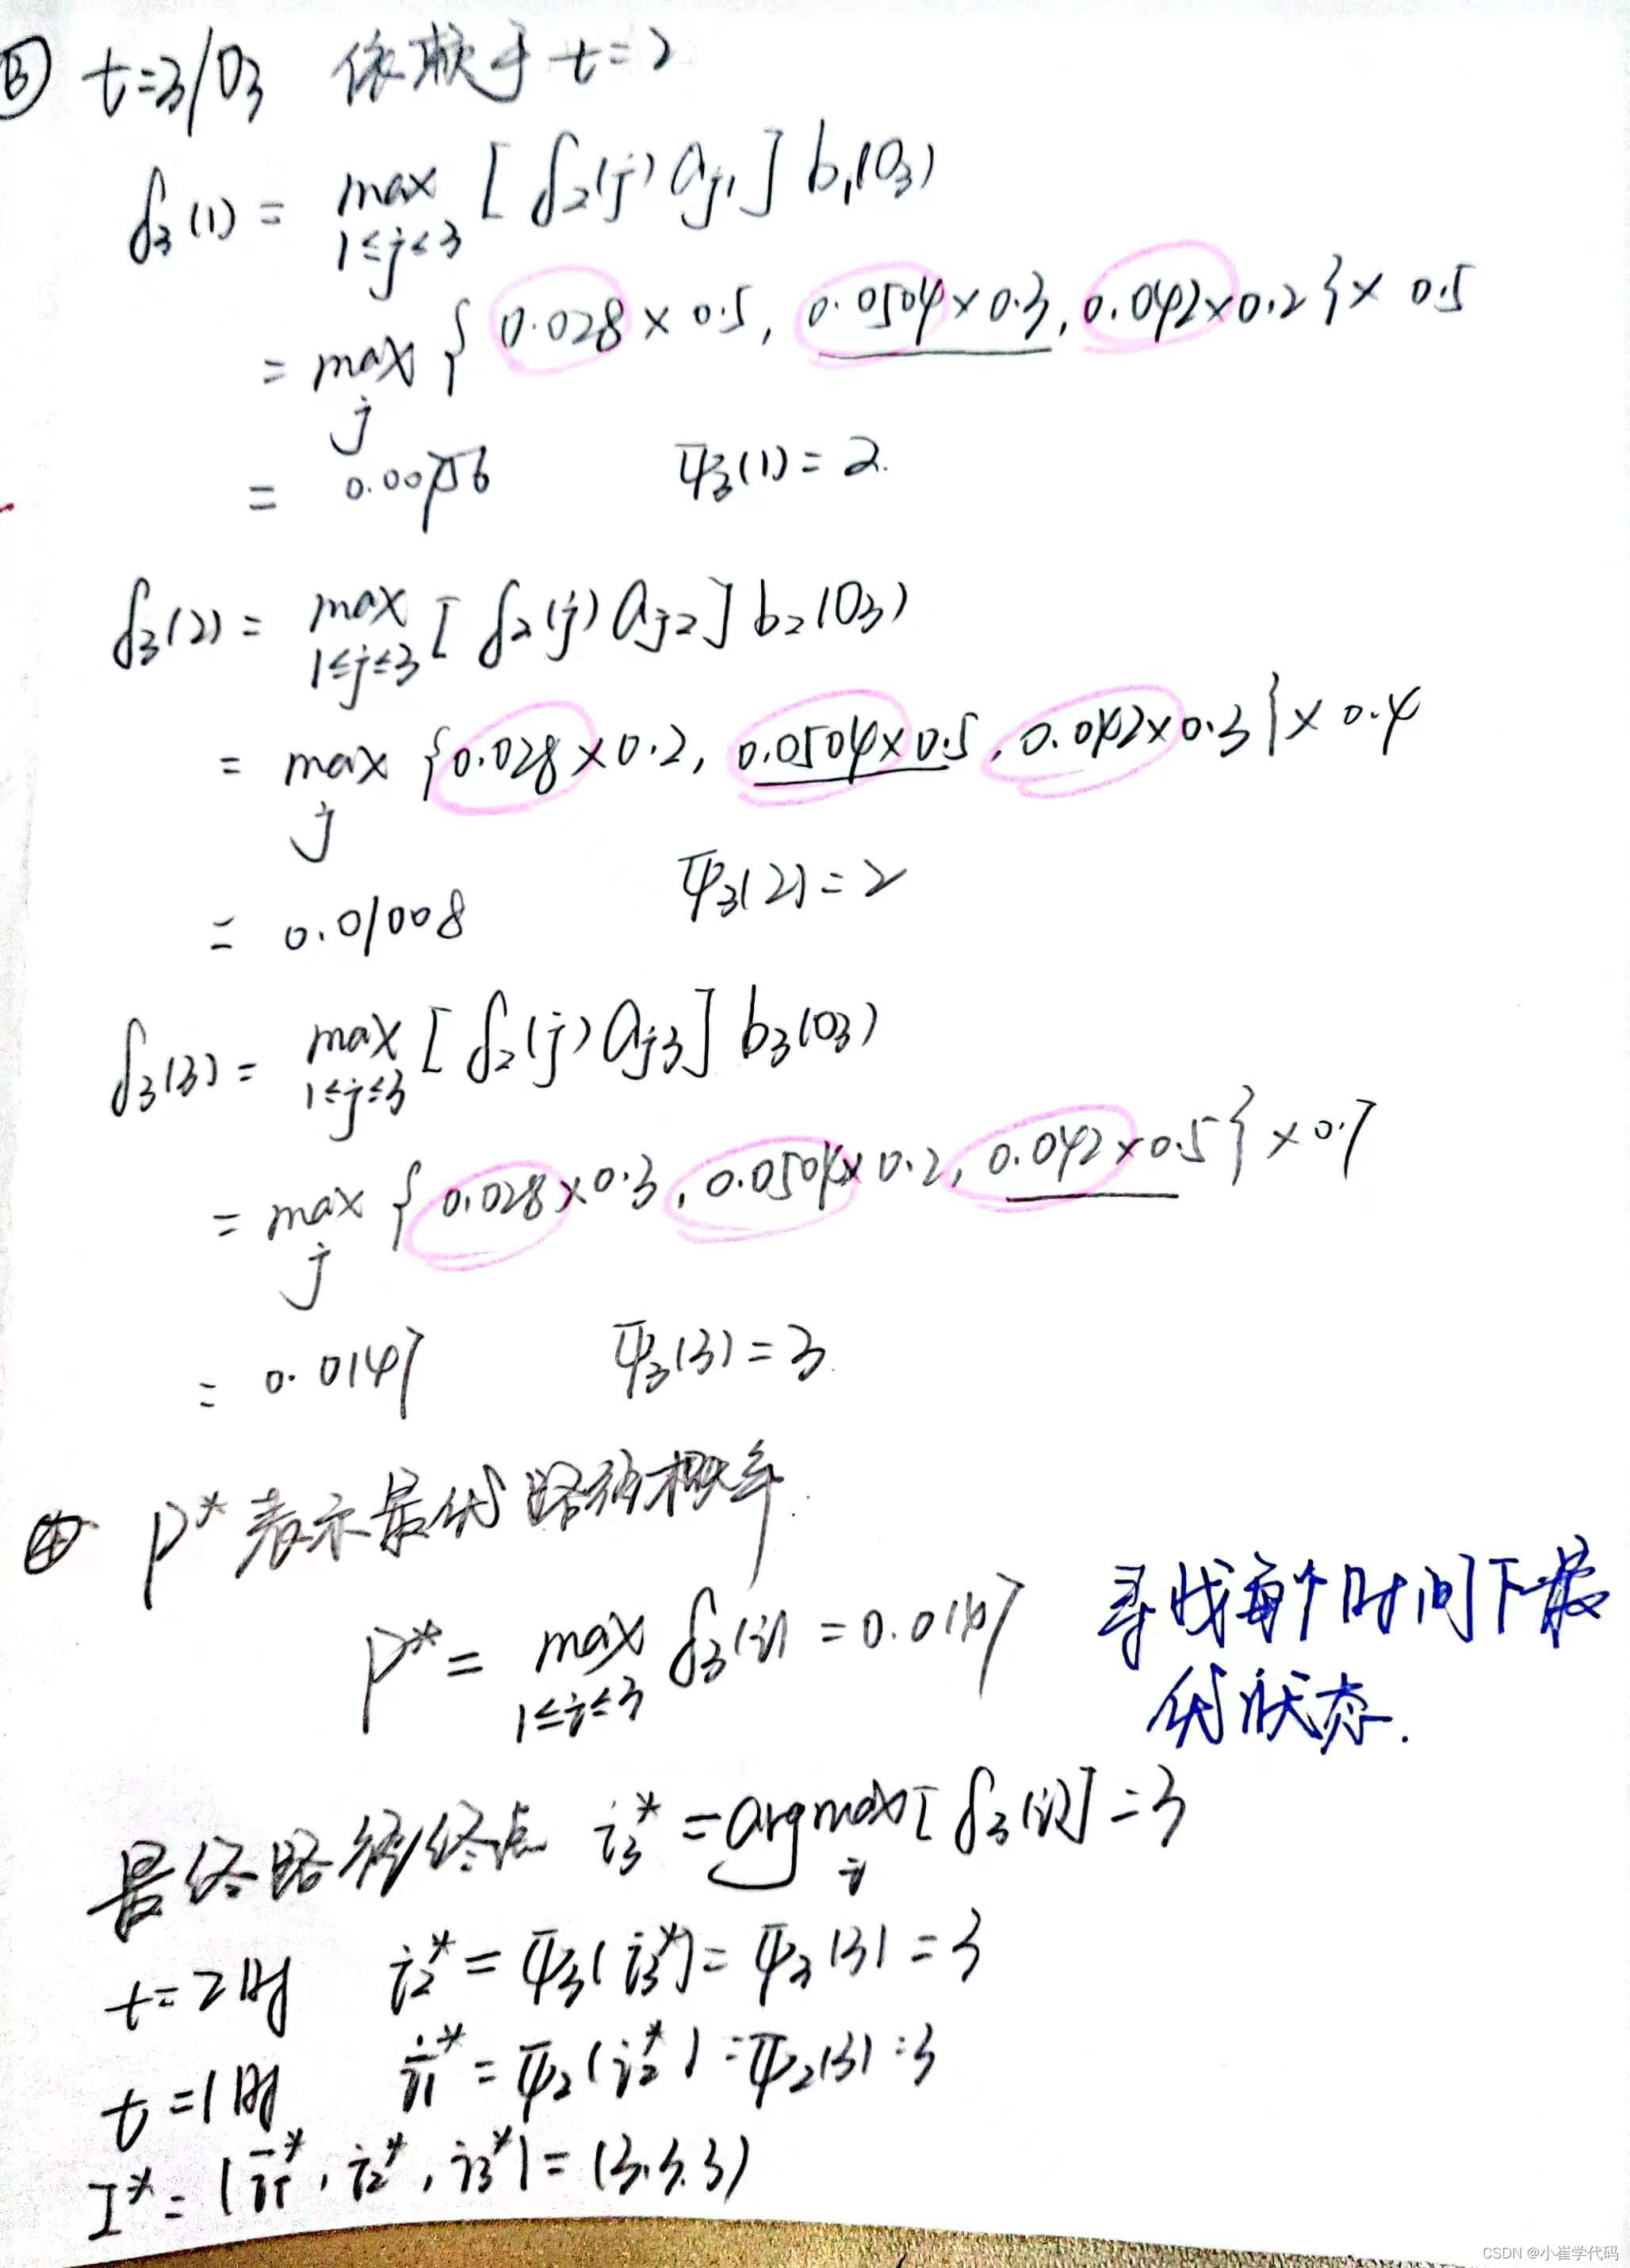 ③ t=3/O₃ 依赖于 t=2
δ₃(1) = max 1≤j≤3 [δ₂(j) aⱼ₁] b₁(O₃)
= max j {0.028×0.5, 0.0504×0.3, 0.042×0.2}×0.5
= 0.00756 Ψ₃(1)=2.
δ₃(2) = max 1≤j≤3 [δ₂(j) aⱼ₂] b₂(O₃)
= max j {0.028×0.2, 0.0504×0.5, 0.042×0.3}×0.4
= 0.01008 Ψ₃(2)=2
δ₃(3) = max 1≤j≤3 [δ₂(j) aⱼ₃] b₃(O₃)
= max j {0.028×0.3, 0.0504×0.2, 0.042×0.5}×0.7
= 0.0147 Ψ₃(3)=3.
④ P* 表示最优路径概率.
P* = max 1≤i≤3 δ₃(i) = 0.0147 寻找每个时间下最
优状态.
最终路径终点 i₃* = argmax i [δ₃(i)] = 3
t=2时 i₂* = Ψ₃(i₃*) = Ψ₃(3) = 3
t=1时 i₁* = Ψ₂(i₂*) = Ψ₂(3) = 3
I* = (i₁*, i₂*, i₃*) = (3.3.3)
CSDN @小崔学代码